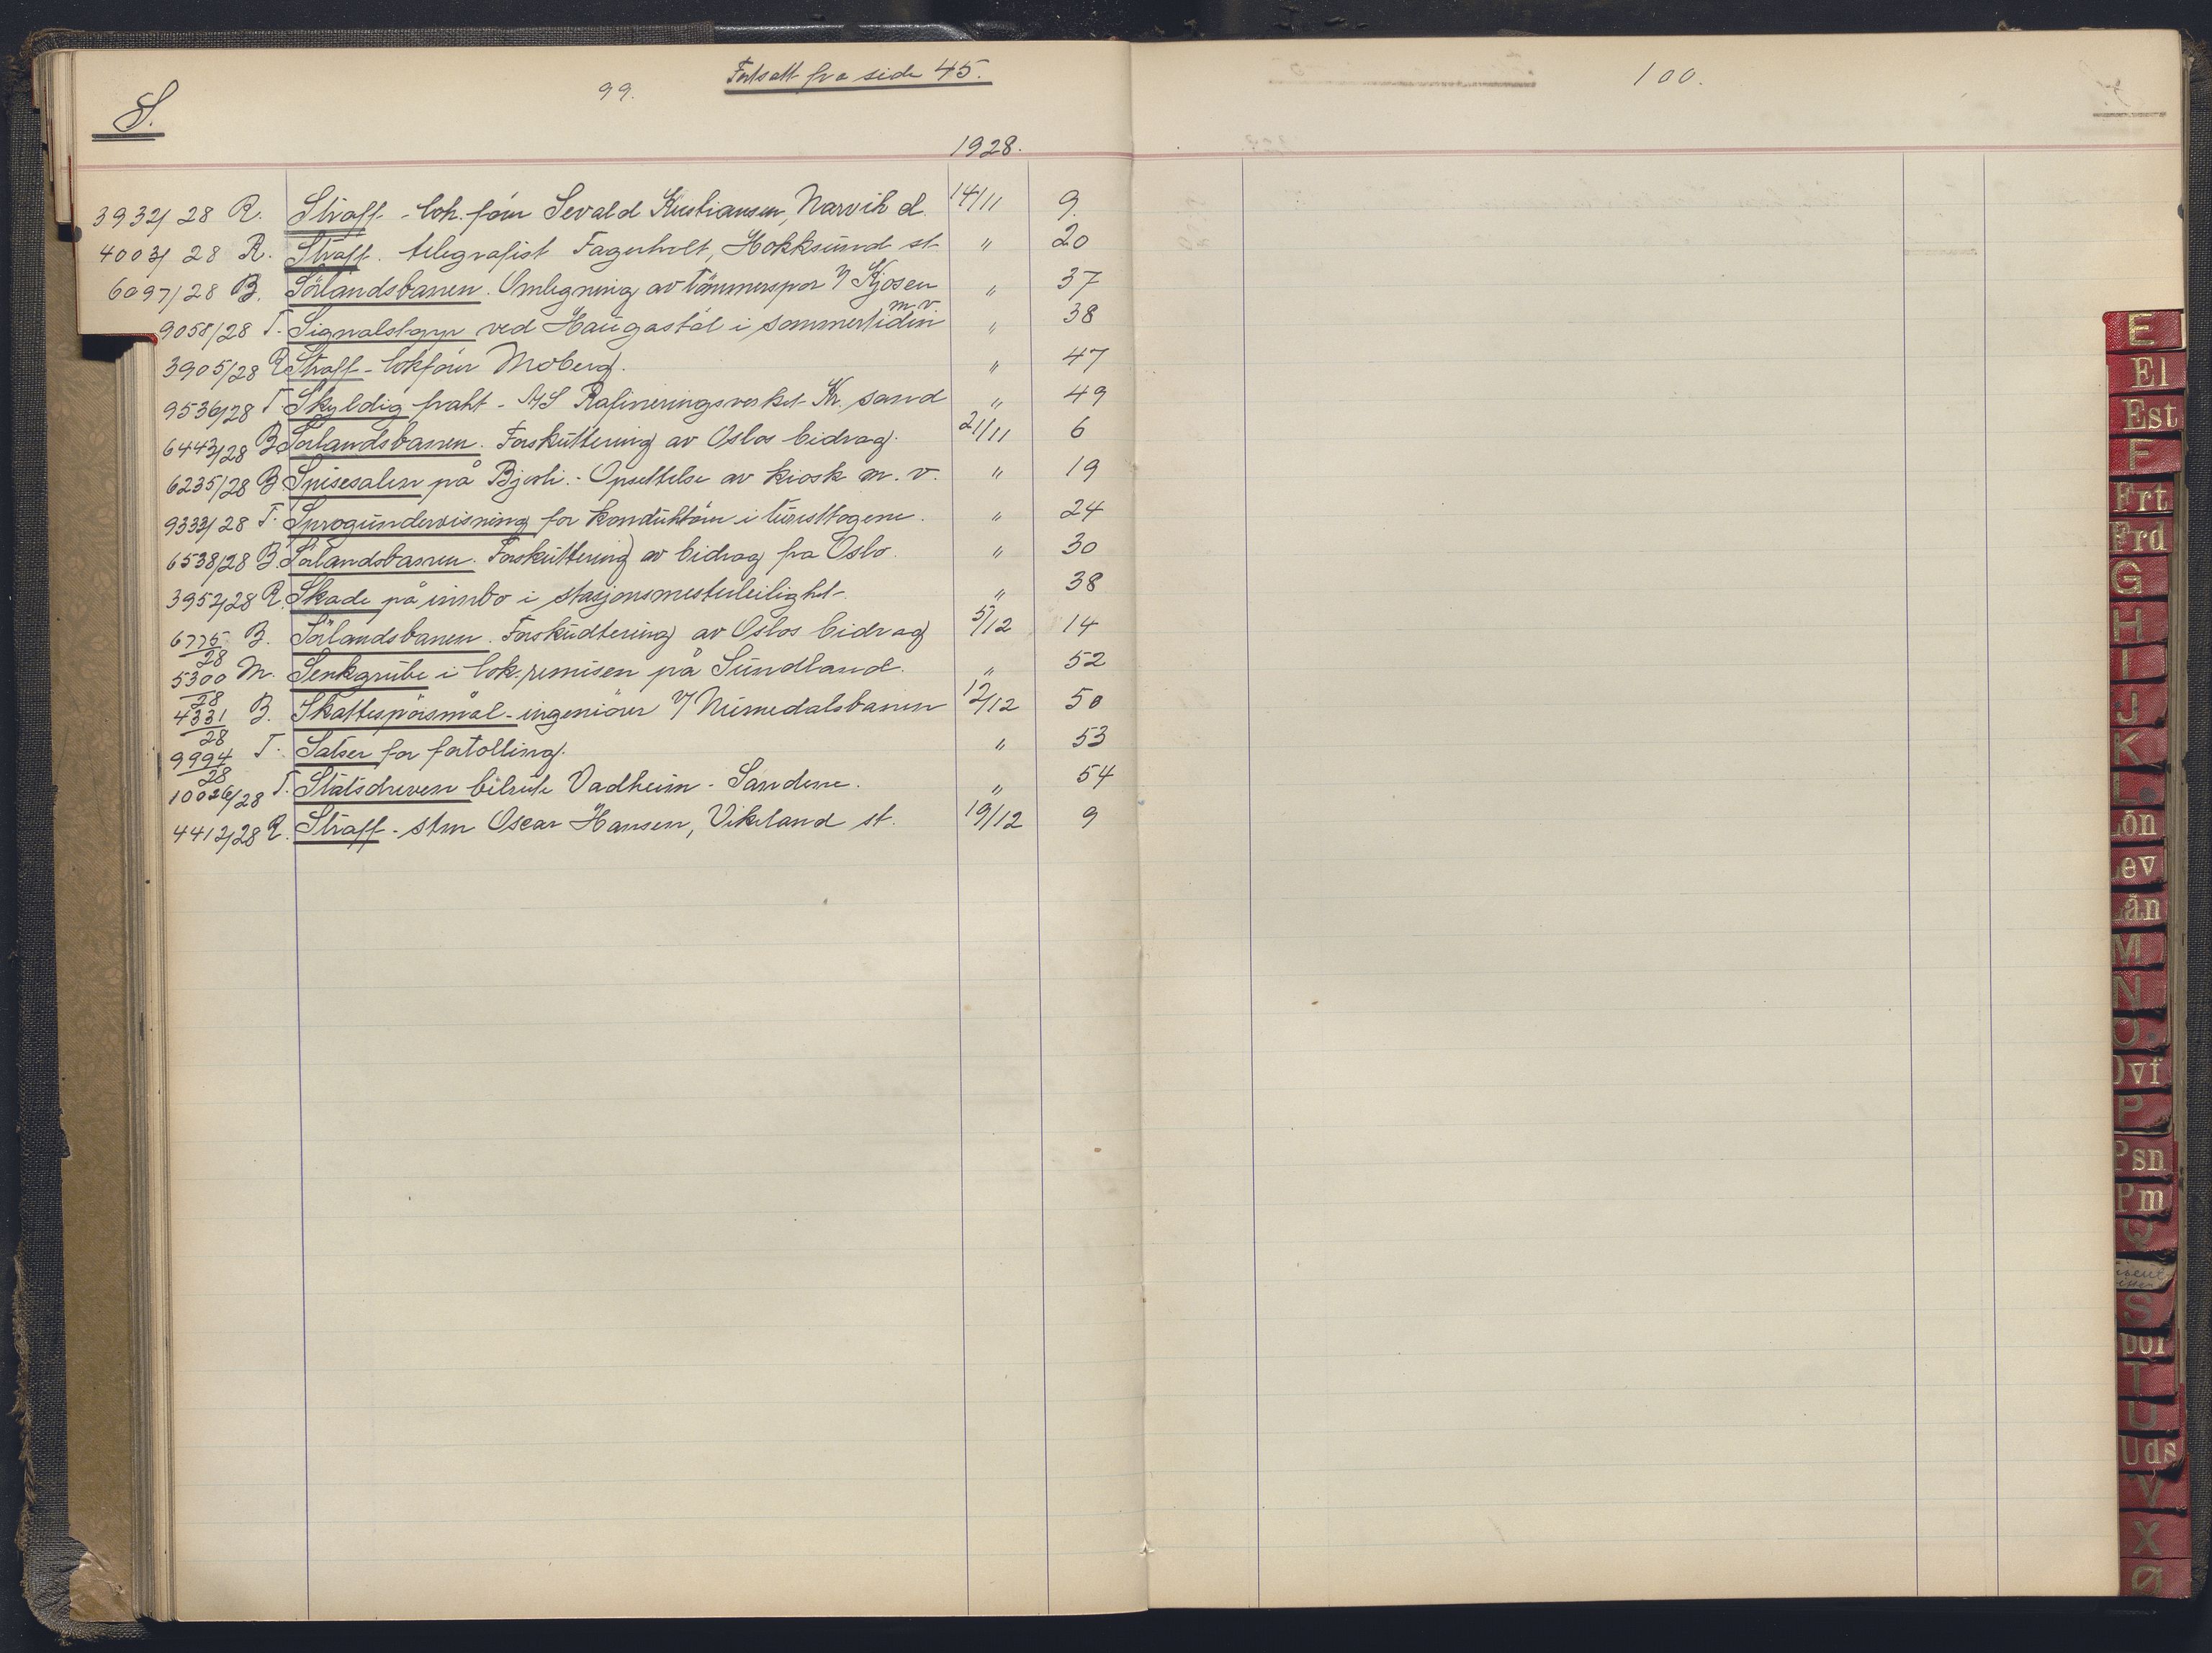 S.
99.
Fortsatt fra side 45.
1928.
3932/28 R. Straff - lok.förer Sevald Kristiansen, Narvik d. 14/11 9.
4003/28 R. Straff. telegrafist Fagerholt, Hokksund st. " 20
6097/28 B. Sörlandsbanen. Omlegning av tömmerspor v/ Kjosen " 37
9058/28 T. Signalstopp ved Haugastöl i sommertiden m.v. " 38
3905/28 R. Straff - lokförer Moberg. " 47
9536/28 T. Skyldig frakt - A/S Rafineringsverket Kr. sand " 49
6443/28 B. Sörlandsbanen. Forskuttering av Oslos bidrag. 21/11 6
6235/28 B. Spisesalen på Bjorli. - Opsettelse av kiosk m. v. " 19
9333/28 T. Sprogundervisning for konduktörer i turisttogene. " 24
6538/28 B. Sörlandsbanen. Forskuttering av bidrag fra Oslo. " 30
3952/28 R. Skade på innbo i stasjonsmesterleilighet. " 38
6775/28 B. Sörlandsbanen. Forskudtering av Oslos bidrag 5/12 14
5300/28 M. Senkgrube i lok.remisen på Sundland. " 52
4331/28 B. Skattespörsmål - ingeniörer v/ Numedalsbanen 12/12 50
9994/28 T. Satser for fortolling. " 53
10026/28 T. Statsdreven bilrute Vadheim - Sandene. " 54
4412/28 R. Straff - stm Oscar Hansen, Vikeland st. 19/12 9
100.
E
El
Est
F
Frt
Frd
G
H
I
J
K
L
Lön
Lev
Län
M
N
O
Ovf
P
Psn
Pm
Q
S
T
U
Uds
V
X
Ø